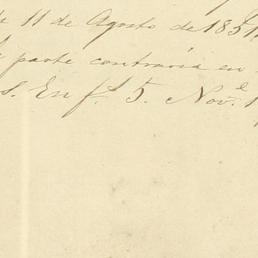 e 11 de Agosto de 185
parte contraria en
s. En f.s 5. Nov.e 1